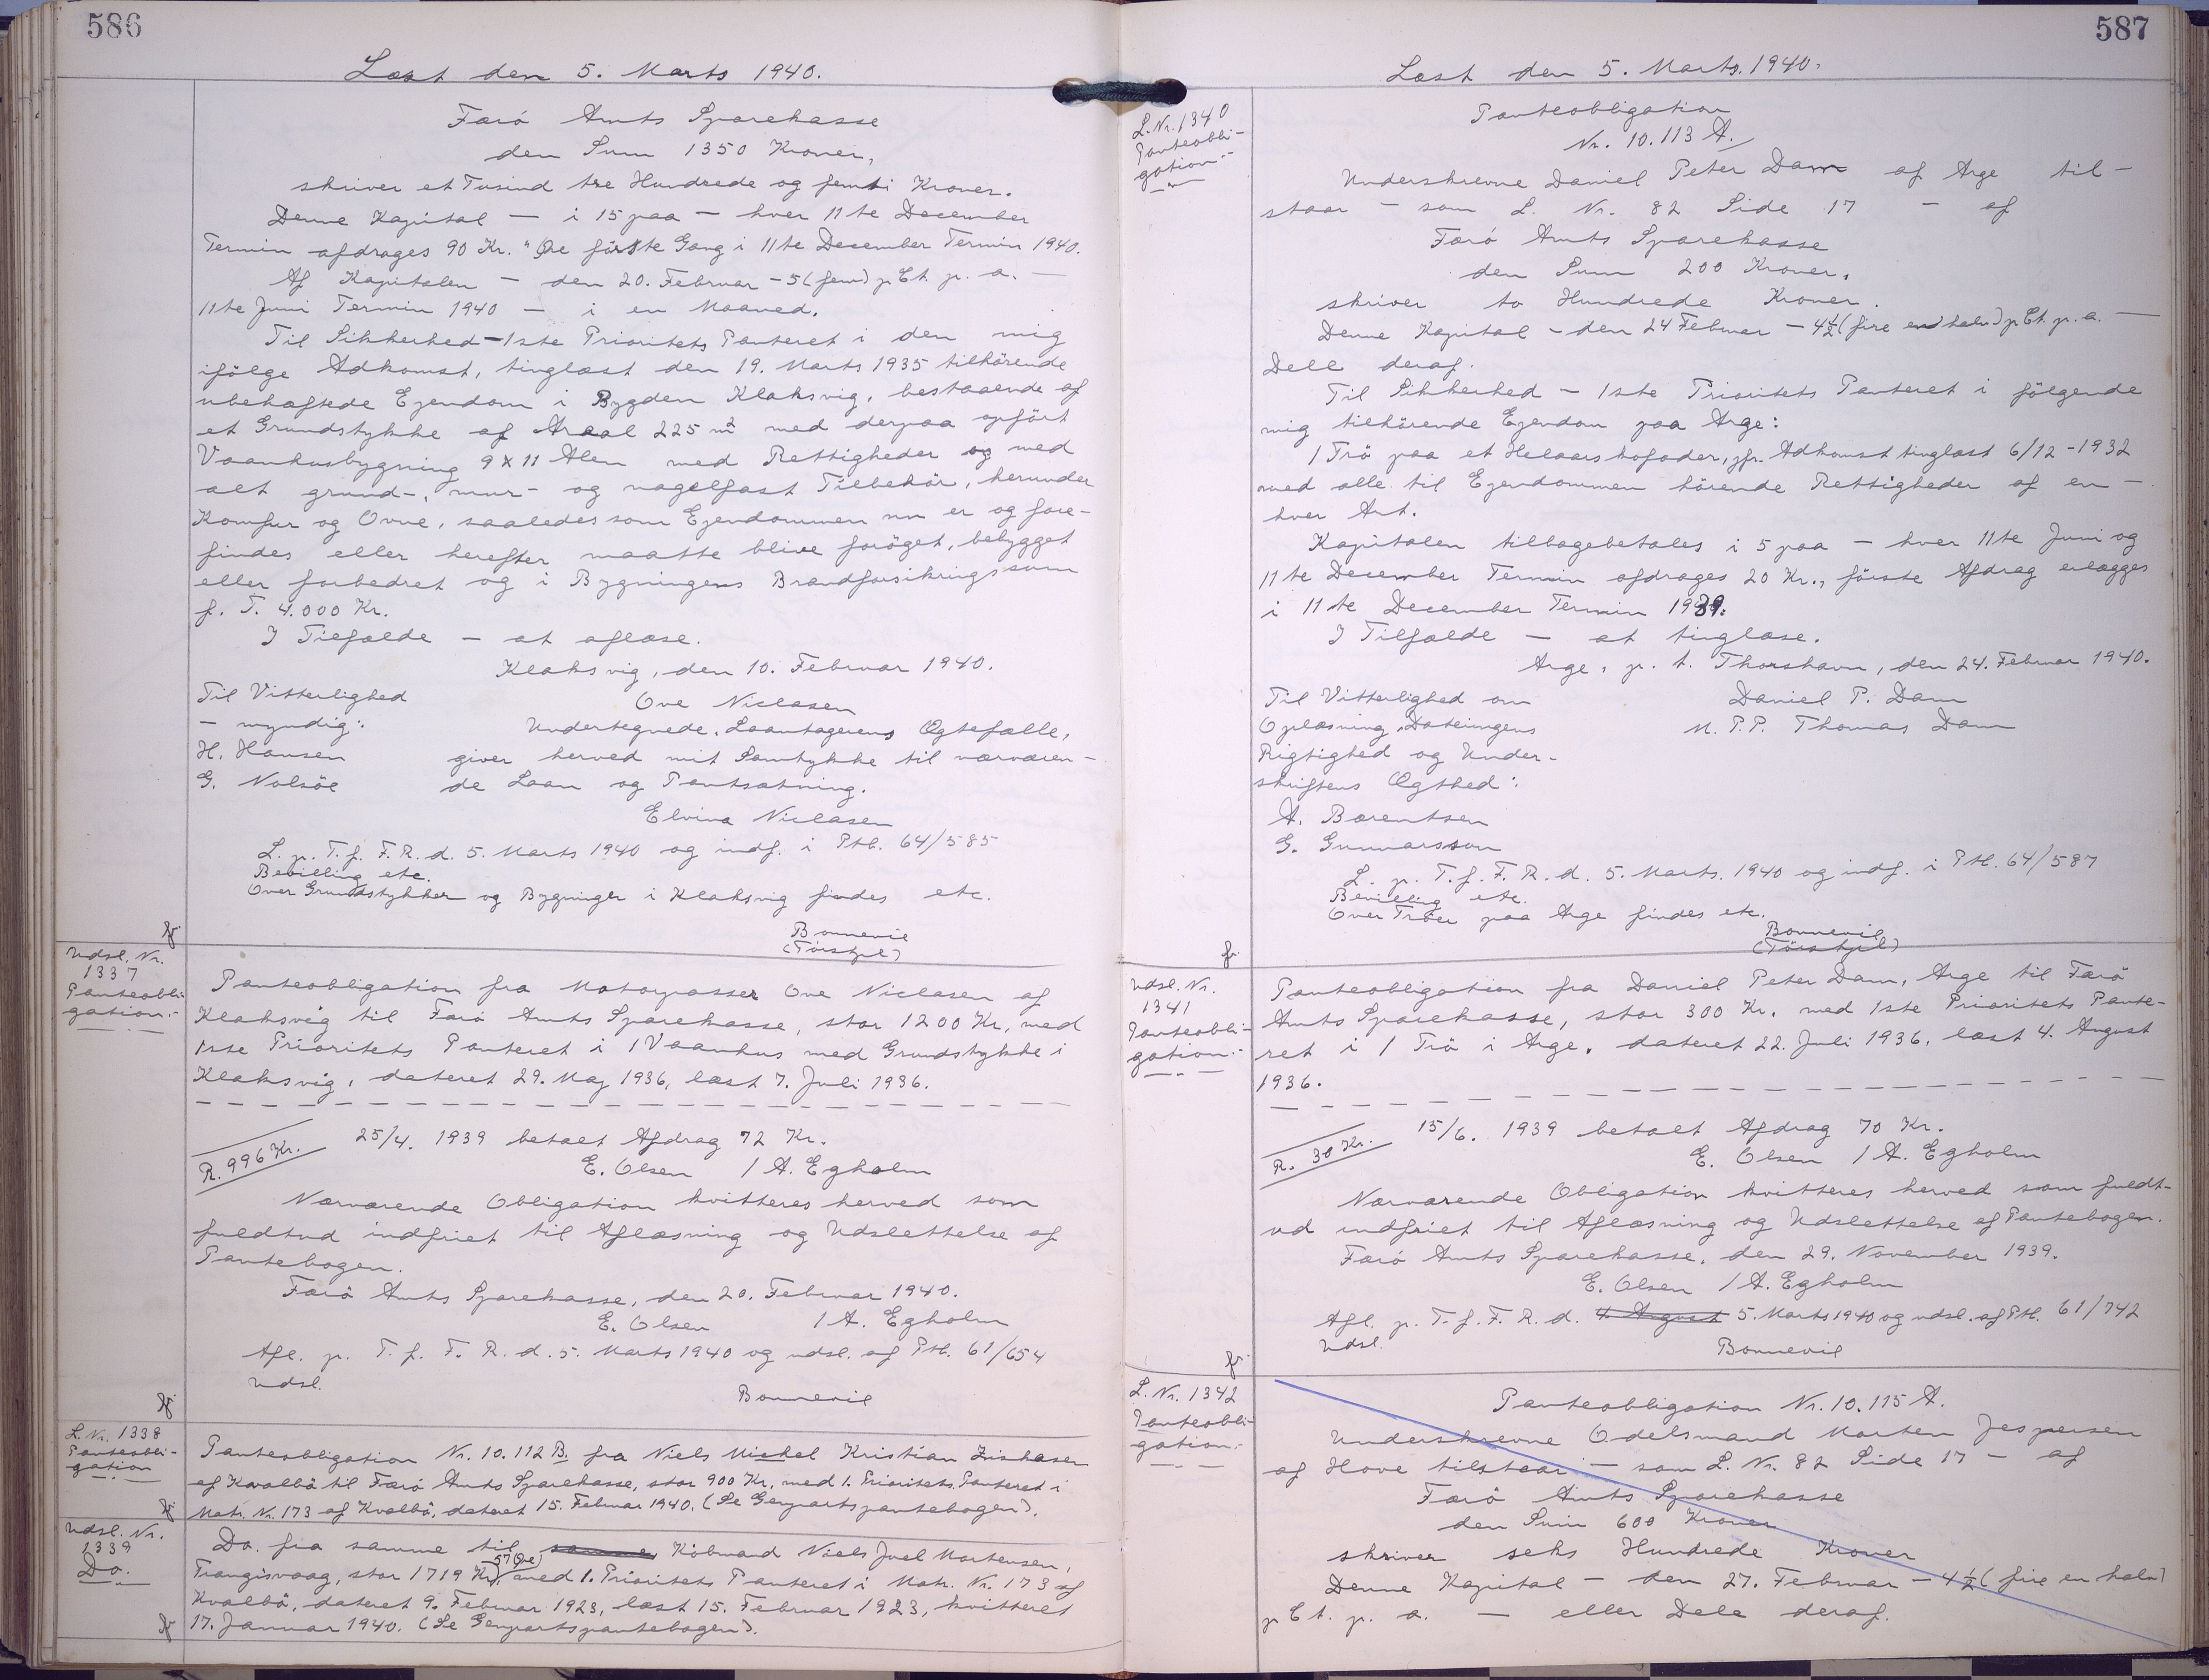 586
Læst den 5. Marts 1940.
Færö Amts Sparekasse
den Sum 1350 Kroner,
skriver et Tusind tre Hundrede og femti Kroner.
Denne Kapital — i 15 paa — hver 11te December
Termin afdrages 90 Kr. " Øre första Gang i 11te December Termin 1940.
Af Kapitalen — den 20. Februar – 5 (fem) p Ct. p. a. —
11te Juni Termin 1940 — i en Maaned.
Til Sikkerhed – 1ste Prioritets Panteret i den mig
ifölge Adkomst, tinglæst den 19. Marts 1935 tilhörende
ubehæftede Ejendom i Bygden Klaksvig, bestaaende af
et Grundstykke af Areal 225 m² med derpaa opfört
Vaanhusbygning 9 x 11 Alen med Rettigheder og med
alt grund-, mur- og nagelfast Tilbehör, herunder
Komfur og Ovne, saaledes som Ejendommen nu er og fore-
findes eller herefter maatte blive foröget, bebygget
eller forbedret og i Bygningens Brandforsikringssum
p. T. 4.000 Kr.
I Tilfælde — at aflæse.
Klaksvig, den 10. Februar 1940.
Til Vitterlighed
Ove Niclasen
— myndig:
Undertegnede, Laantagerens Ægtefælle,
H. Hansen
giver herved mit Samtykke til nærværen-
G. Nolsöe
de Laan og Pantsætning.
Elvina Niclasen
L. p. T. f. F. R. d. 5. Marts 1940 og indf. i Ptb. 64/585
Bevilling etc.
Over Grundstykker og Bygninger i Klaksvig findes etc.
Bonnevie
Udsl. Nr.
1337
Panteobli-
gation:-
Panteobligation fra Motorpasser Ove Niclasen af
Klaksvig til Færö Amts Sparekasse, stor 1200 Kr, med
1ste Prioritets Panteret i 1 Vaanhus med Grundstykke i
Klaksvig, dateret 29. Maj 1936, læst 7. Juli 1936.
R. 996 Kr.
25/4. 1939 betalt Afdrag 72 Kr.
E. Olsen / A. Egholm
Nærværende Obligation kvitteres herved som
fuldtud indfriet til Aflæsning og Udslettelse af
Pantebogen.
Færö Amts Sparekasse, den 20. Februar 1940.
E. Olsen / A. Egholm
Afl. p. T. f. F. R. d. 5. Marts 1940 og udsl. af Ptb. 61/654
Udsl.
Bonnevie
L. Nr. 1338
Panteobli-
gation
Panteobligation Nr. 10.112 B. fra Niels Mickel Kristian Ziskasen
af Kvalbö til Færö Amts Sparekasse, stor 900 Kr, med 1. Prioritets Panteret i
Matr. Nr. 173 af Kvalbö, dateret 15. Februar 1940. (Se Genpartspantebogen).
Udsl. Nr.
1339
Do.
Do. fra samme til samme Köbmand Niels Juel Mortensen,
Trangisvaag, stor 1719 Kr, 57 Øre) med 1. Prioritets Panteret i Matr. Nr. 173 af
Kvalbö, dateret 9. Februar 1923, læst 15. Februar 1923, kvitteret
17. Januar 1940. (Se Genpartspantebogen).
587
Læst den 5. Marts. 1940.
L. Nr. 1340
Panteobli-
gation:-
Panteobligation
Nr. 10.113 A.
Underskrevne Daniel Peter Dam af Arge til-
staar — som L. Nr. 82 Side 17 — af
Færö Amts Sparekasse
den Sum 200 Kroner,
skriver to Hundrede Kroner.
Denne Kapital – den 24 Februar – 4½ (fire en halv) p Ct. p. a. —
Dele deraf.
Til Sikkerhed — 1ste Prioritets Panteret i fölgende
mig tilhörende Ejendom paa Arge:
1 Trö paa et Helaarskofoder, jfr. Adkomst tinglæst 6/12 - 1932
med alle til Ejendommen hörende Rettigheder af en-
hver Art.
Kapitalen tilbagebetales i 5 paa — hver 11te Juni og
11te December Termin afdrages 20 Kr., förste Afdrag erlægges
i 11te December Termin 1939.
I Tilfælde — at tinglæse.
Arge, p. t. Thorshavn, den 24. Februar 1940.
Til Vitterlighed om
Daniel P. Dam
Oplæsning, Dateringens
M. P. P. Thomas Dam
Rigtighed og Under-
skriftens Ægthed:
A. Bærentsen
G. Gunnarsson
L. p. T. f. F. R. d. 5. Marts. 1940 og indf. i Ptb. 64/587
Bevilling etc.
Over Tröer paa Arge findes etc.
Bonnevie
Udsl. Nr.
1341
Panteobli-
gation:-
Panteobligation fra Daniel Peter Dam, Arge til Færö
Amts Sparekasse, stor 300 Kr. med 1ste Prioritets Pante-
ret i 1 Trö i Arge, dateret 22. Juli 1936, læst 4. August
1936.
R. 30 Kr.
15/6. 1939 betalt Afdrag 70 Kr.
E. Olsen / A. Egholm
Nærværende Obligation kvitteres herved som fuldt-
ud indfriet til Aflæsning og Udslettelse af Pantebogen.
Færö Amts Sparekasse, den 29. November 1939.
E. Olsen / A. Egholm
Afl. p. T. f. F. R. d. 4. August 5. Marts 1940 og udsl. af Ptb. 61/742
Udsl.
Bonnevie
L. Nr. 1342
Panteobli-
gation:-
Panteobligation Nr. 10.115 A.
Underskrevne Odelsmand Morten Jespersen
af Hove tilstaar — som L. Nr. 82 Side 17 — af
Færö Amts Sparekasse
den Sum 600 Kroner
skriver seks Hundrede Kroner
Denne Kapital — den 27. Februar — 4½ (fire en halv)
p Ct. p. a. — eller Dele deraf.